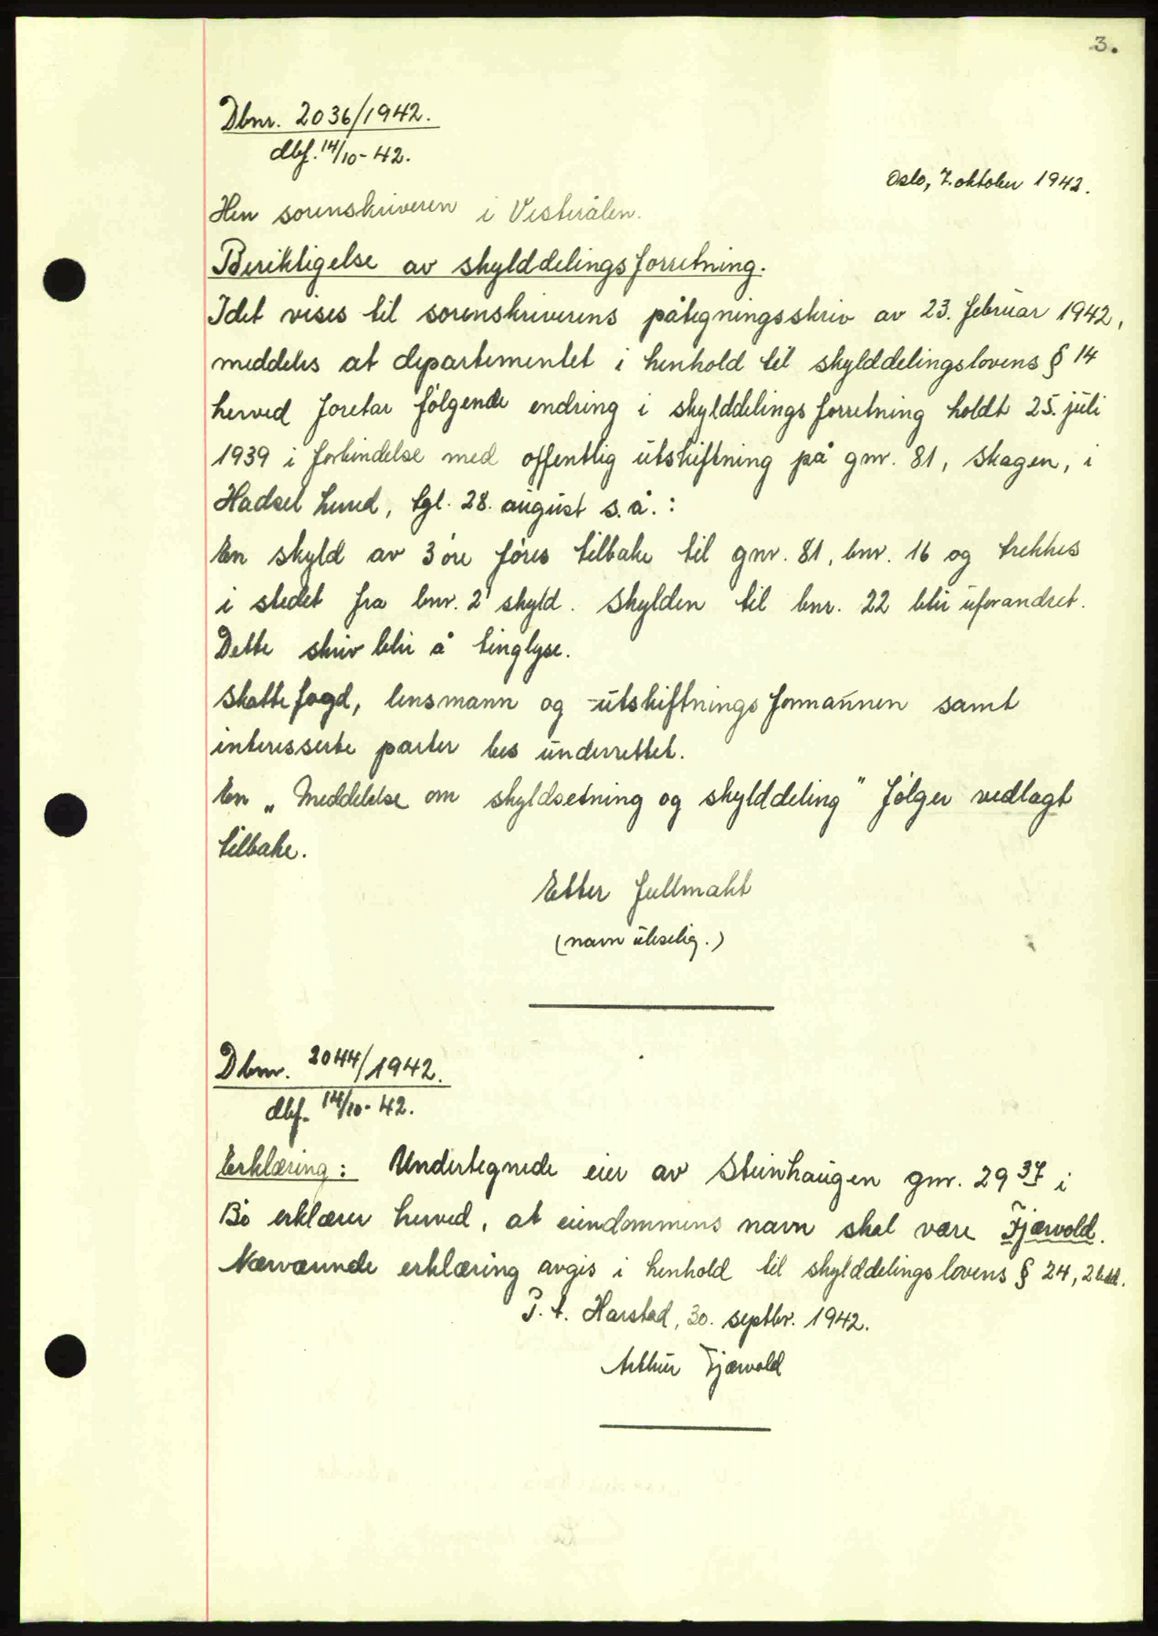 3.
Dbnr. 2036/1942.
dbf. 14/10-42.
Oslo, 7. oktober 1942.
Herr sorenskriveren i Vesterålen.
Beriktigelse av skylddelingsforretning.
Idet vises til sorenskriverens påtegningsskriv av 23. februar 1942,
meddeles at departementet i henhold til skylddelingslovens § 14
herved foretar følgende endring i skylddelingsforretning holdt 25. juli
1939 i forbindelse med offentlig utskiftning på gnr. 81, Skagen, i
Hadsel herred, tgl. 28. august s.å.:
En skyld av 3 øre føres tilbake til gnr. 81, bnr. 16 og trekkes
i stedet fra bnr. 2' skyld. Skylden til bnr. 22 blir uforandret.
Dette skriv blir å tinglyse.
Skattefogd, lensmann og utskiftningsformannen samt
interesserte parter bes underrettet.
En „Meddelelse om skyldsetning og skylddeling" følger vedlagt
tilbake.
Etter fullmakt
(navn uleselig.)
Dbnr. 2044/1942.
dbf. 14/10-42.
Erklæring: Undertegnede eier av Steinhaugen gnr. 29 37 i
Bø erklærer herved, at eiendommens navn skal være Fjærvold.
Nærværende erklæring avgis i henhold til skylddelingslovens § 24, 2 ledd.
P.t. Harstad, 30. septbr. 1942.
Arthur Fjærvold